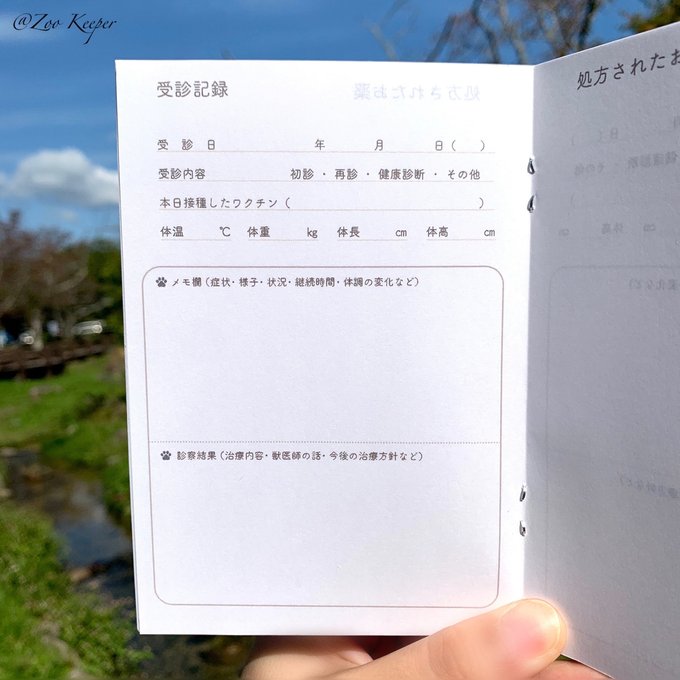 @Zoo Keeper
受診記録
処方されたお薬
処方されたお
受 診 日 年 月 日( )
受診内容 初診・再診・健康診断・その他
本日接種したワクチン( )
体温 ℃ 体重 kg 体長 cm 体高 cm
メモ欄(症状・様子・状況・継続時間・体調の変化など)
診察結果(治療内容・獣医師の話・今後の治療方針など)